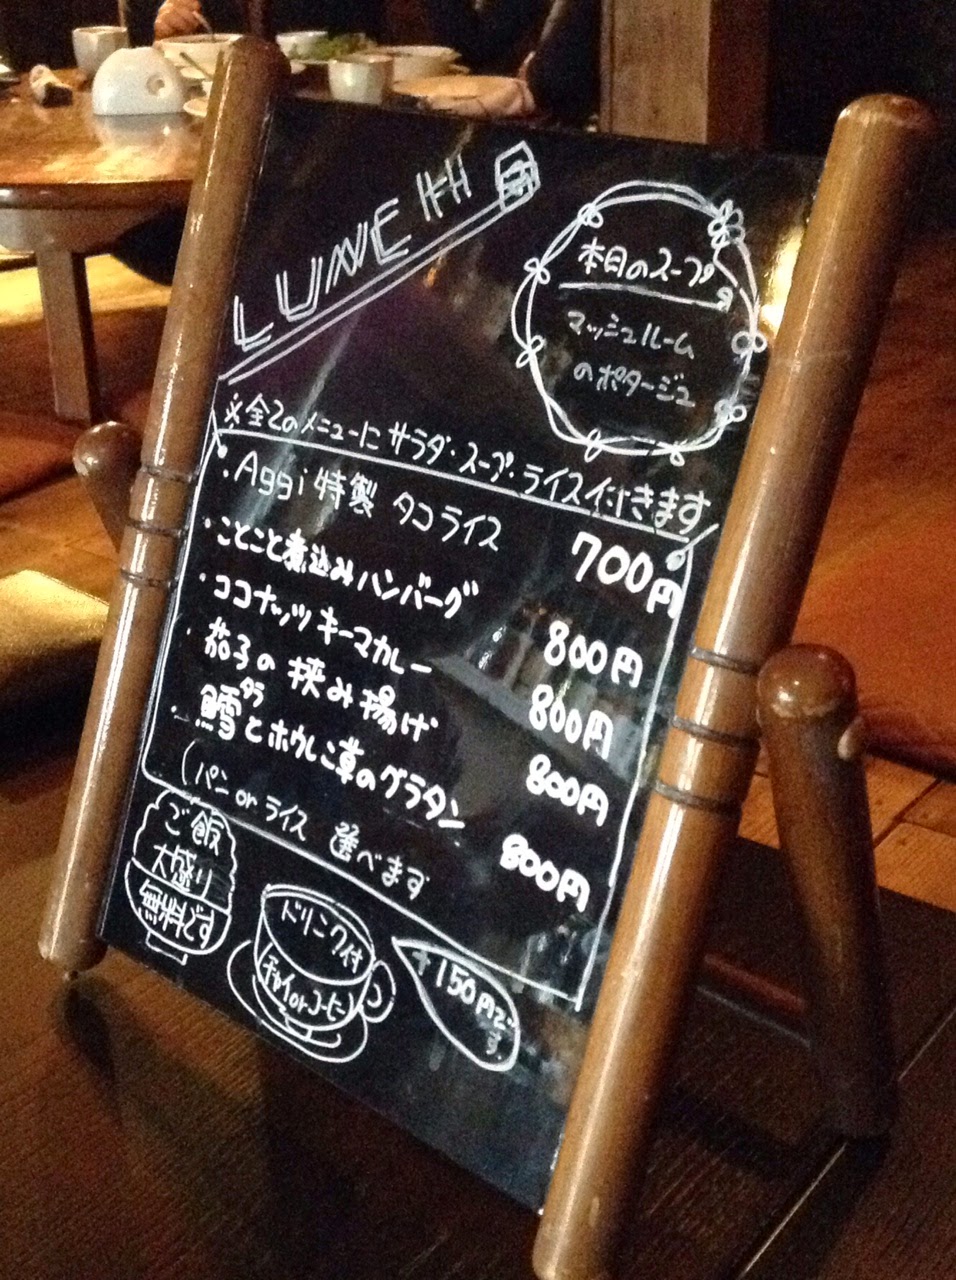 LUNCH
本日のスープ
マッシュルーム
のポタージュ
※全てのメニューにサラダ・スープ・ライス付きます
・Aggi特製 タコライス 700円
・ことこと煮込みハンバーグ 800円
・ココナッツキーマカレー 800円
・茄子の挟み揚げ 800円
タラ
・鱈とホウレンコ草のグラタン 800円
(パン or ライス 選べます
ご飯
大盛り
無料です
ドリンク付
チャイorコーヒー
+150円で
す。